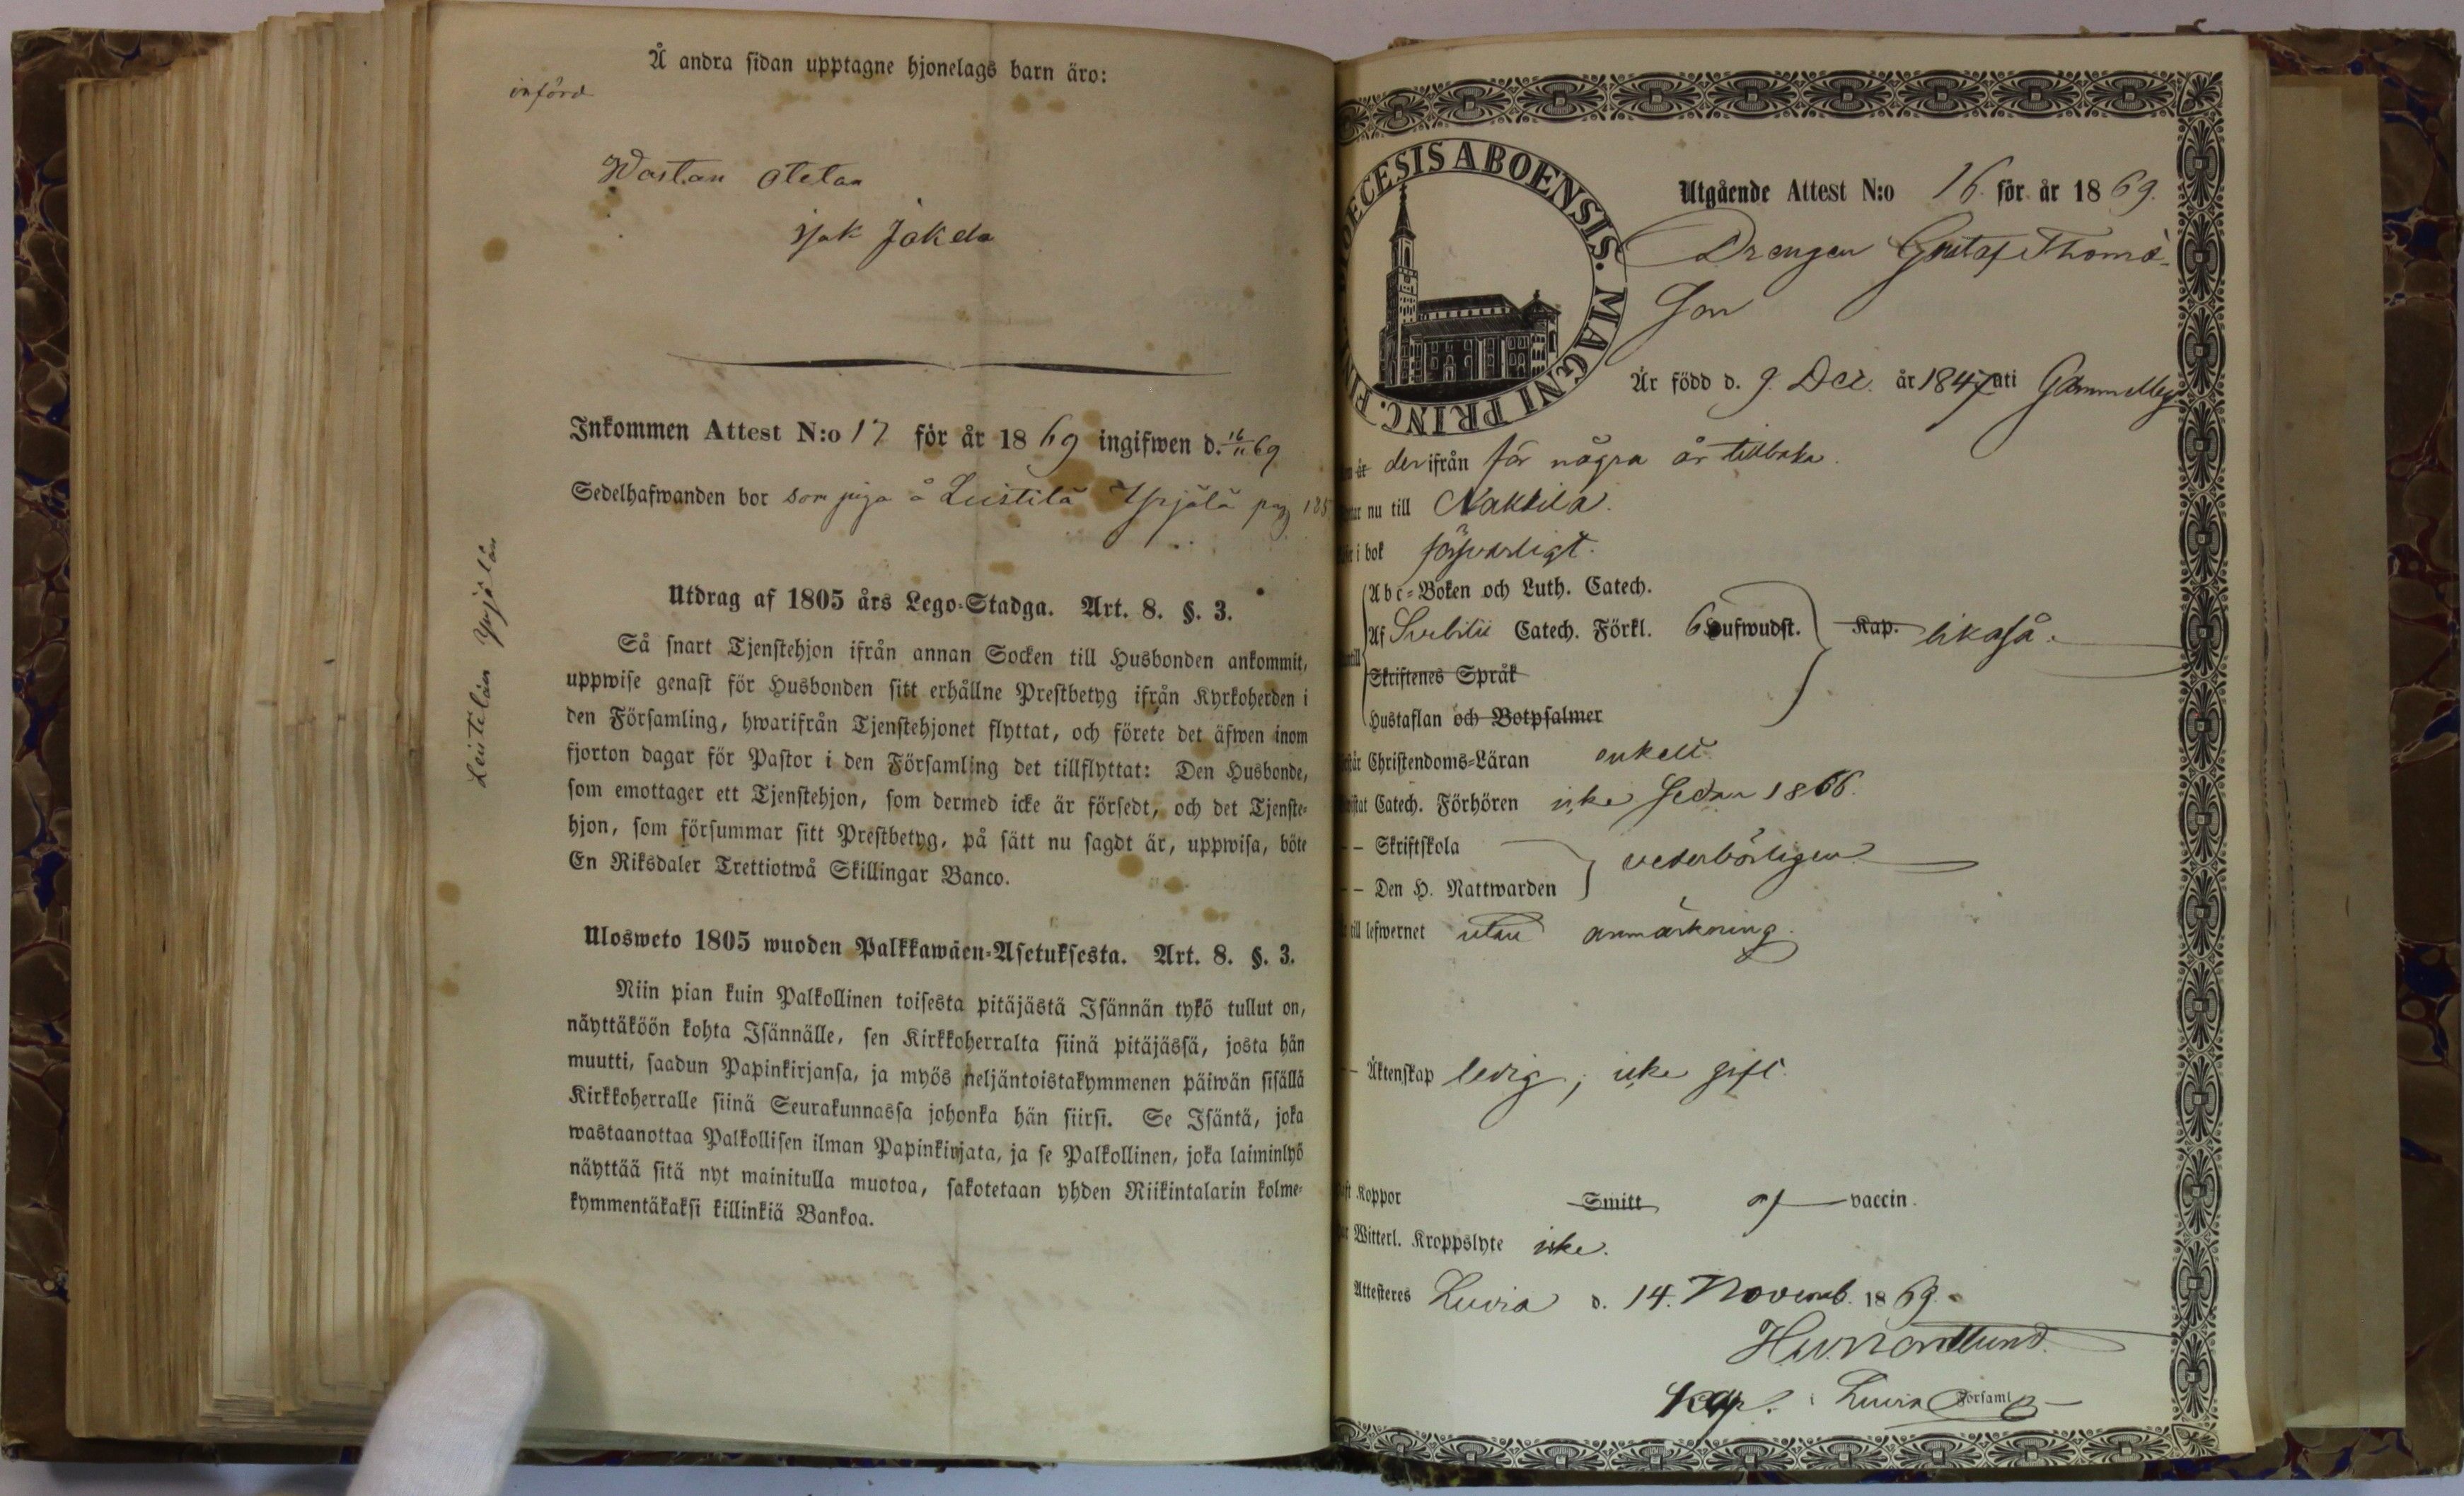 Å andra sidan upptagne hjonelags barn äro:
införd
Wastan otetan
Inkommen Attest N:o 17 för år 1869 ingifwen d. 16/11 69
Sedelhafwanden bor som piga å Leistilä Yrjälä pag 185
Leistilän Yrjälän
Utdrag af 1805 års Lego-Stadga. Art. 8. §. 3.
Så snart Tjenstehjon ifrån annan Socken till Husbonden ankommit,
uppwise genast för Husbonden sitt erhållne Prestbetyg ifrån Kyrkoherden i
den Församling, hwarifrån Tjenstehjonet flyttat, och förete det äfwen inom
fjorton dagar för Pastor i den Församling det tillflyttat: Den Husbonde,
som emottager ett Tjenstehjon, som dermed icke är försedt, och det Tjenste-
hjon, som försummar sitt Prestbetyg, på sätt nu sagdt är, uppwisa, böte
En Riksdaler Trettiotwå Skillingar Banco.
Ulosweto 1805 wuoden Palkkawäen-Asetuksesta. Art. 8. §. 3.
Niin pian kuin Palkollinen toisesta pitäjästä Isännän tykö tullut on,
näyttäköön kohta Isännälle, sen Kirkkoherralta siinä pitäjässä, josta hän
muutti, saadun Papinkirjansa, ja myös neljäntoistakymmenen päiwän sisällä
Kirkkoherralle siinä Seurakunnassa johonka hän siirsi. Se Isäntä, joka
wastaanottaa Palkollisen ilman Papinkirjata, ja se Palkollinen, joka laiminlyö
näyttää sitä nyt mainitulla muotoa, sakotetaan yhden Riikintalarin kolme-
kymmentäkaksi killinkiä Bankoa.
ECESIS ABOENSIS. MAGNI PRINC. FIN
Utgående Attest N:o 16. för år 1869.
Drengen Gustaf Thomas-
Son
Är född d. 9. Dec. år 1847 uti Gammelby
är derifrån för några år tillbaka.
nu till Nakkila.
i bok försvarligt.
Abc-Boken och Luth. Catech.
Af Svebilii Catech. Förkl. 6 Hufwudst. Kap. likaså.
Skriftenes Språk
Hustaflan och Botpsalmer
Christendoms-Läran enkelt
Catech. Förhören icke sedan 1866.
- - Skriftskola
- - Den H. Nattwarden vederbörligen
till lefwernet utan anmärkning.
- Äktenskap ledig, icke gift.
Koppor Smitt af vaccin.
Witterl. Kroppslyte icke.
Attesteres Luvia d. 14. Novemb. 1869.
Nordlund.
Kap. i Luvia Församl